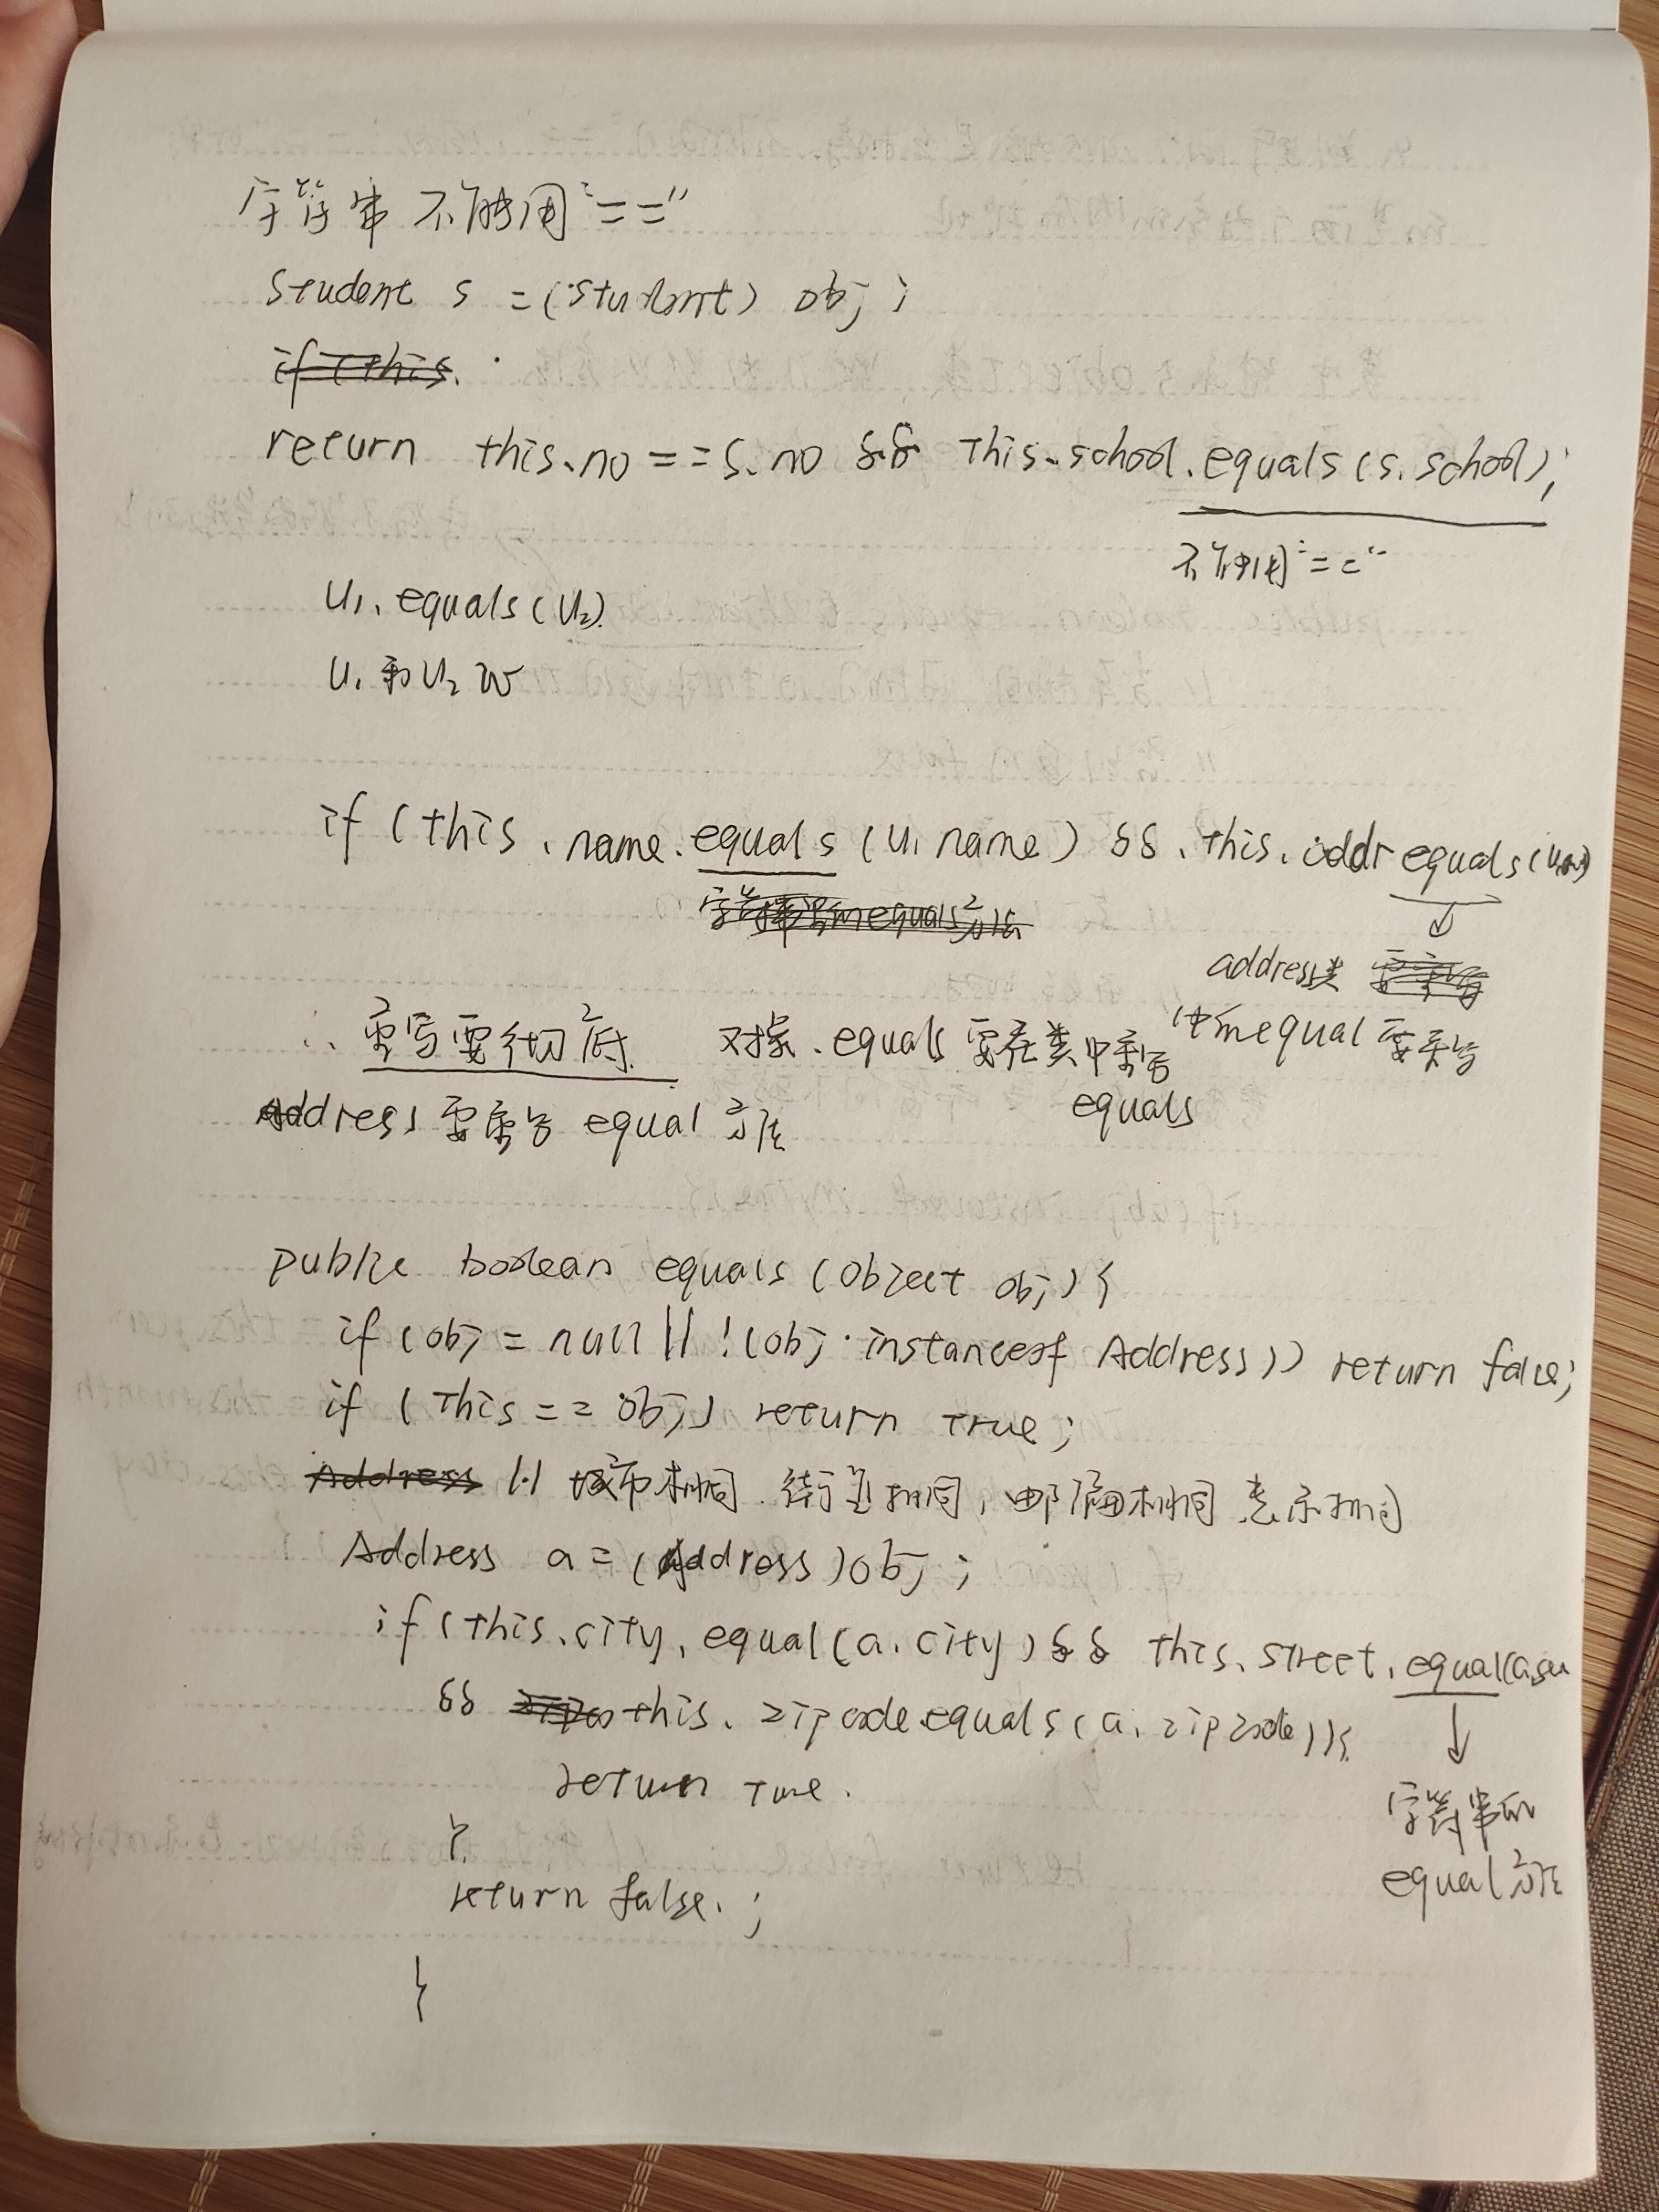 字符串不能用"=="
Student s = (Student) obj ;
return this.no == s.no && this.school.equals(s.school);
不能用"=="
u1.equals(u2).
u1和u2
if (this.name.equals(u.name) && this.addr equals(u.
address类
中的equal要重写
∴ 重写要彻底. 对象.equals要在类中重写
equals
Address要重写 equal 方法
public boolean equals (Object obj) {
if (obj = null || !(obj instanceof Address)) return false;
if (this == obj) return true;
// 城市相同.街道相同,邮编相同 表示相同
Address a = (Address) obj ;
if (this.city.equal(a.city) && this.street.equal(a.
&& this.zipcode.equals(a.zipcode)){
return true.
}
字符串的
equal方法
return false. ;
}